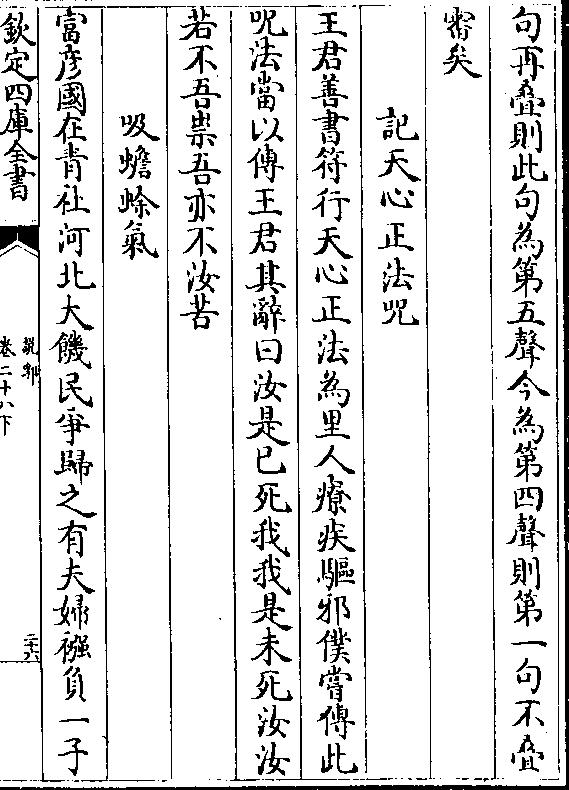 句再疊則此句為第五聲今為第四聲則第一句不疊
審矣
記天心正法咒
王君善書符行天心正法為里人療疾驅邪僕嘗傳此
咒法當以傳王君其辭曰汝是已死我我是未死汝汝
若不吾祟吾亦不汝苦
吸蟾蜍氣
富彦國在青社河北大饑民爭歸之有夫婦襁負一子
欽定四庫全書
說郛
卷二十八下
二十六